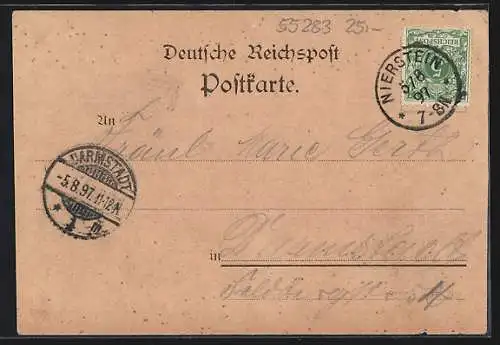 55283 25.-
Deutsche Reichspost
Postkarte.
NIERSTEIN
5/8
97
* 7-8N.
An
Fräul. Marie Gerth
DARMSTADT
-5.8.97.11-12N.
* 1 *
in Darmstadt